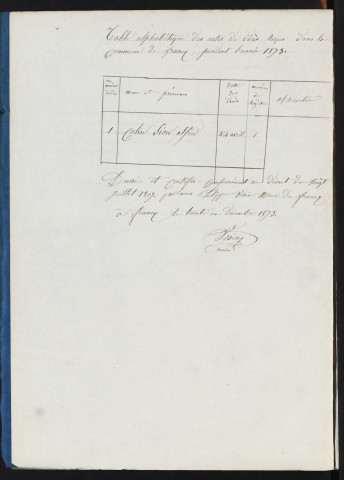 Table alphabétique des actes de décès reçus dans la
commune de francy, pendant l'année 1873.
nom et prénoms
date des décès
observations
1 Colin Léon alfred 24 avril 1
Dressé et certifié conformément au décret du vingt
juillet 1807, par nous Maire de francy
à francy le trente un décembre 1873.